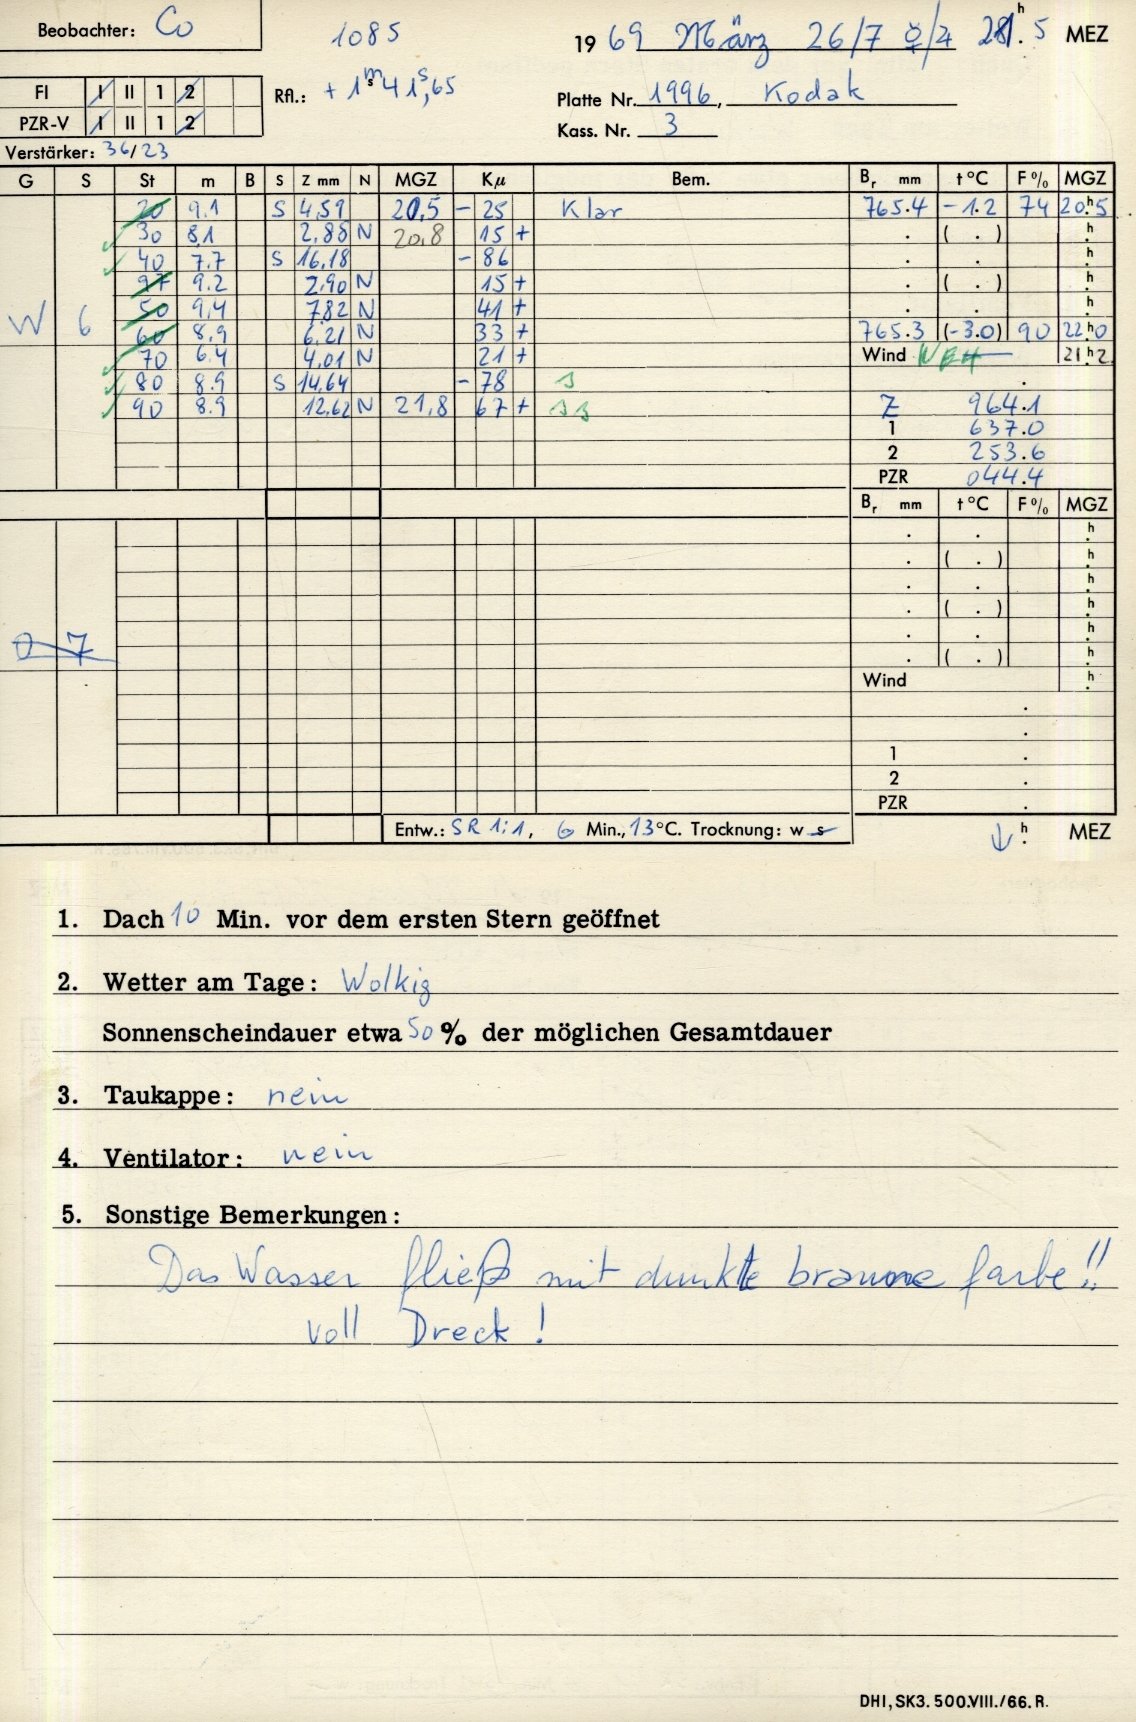 Beobachter: Co
1085
19 69 März 26/7 ☿/♃ 21h.5 MEZ
FI I II 1 2
Rfl.: + 1m 41s,65
Platte Nr. 1996, Kodak
PZR-V I II 1 2
Kass. Nr. 3
Verstärker: 36/23
G S St m B S Z mm N MGZ Kµ Bem. Br mm t °C F % MGZ
20 9.1 S 4,59 20,5 - 25 Klar 765.4 -1.2 74 20h.5
30 8,1 2,88 N 20,8 15 + . ( . ) h.
40 7.7 S 16,18 - 86 . . h.
9.2 2,90 N 15 + . ( . ) h.
W 6 50 9,4 7,82 N 41 + . . h.
60 8,9 6,21 N 33 + 765.3 (-3.0) 90 22h.0
70 6.4 4,01 N 21 + Wind 21h.2
80 8.9 S 14,64 - 78 s .
90 8.9 12,62 N 21,8 67 + ss Z 964.1
1 637.0
2 253.6
PZR 044.4
Br mm t °C F % MGZ
. . h.
. ( . ) h.
. . h.
. ( . ) h.
0 7 . . h.
. ( . ) h.
Wind h.
.
.
1 .
2 .
PZR .
Entw.: SR 1:1, 6 Min., 13 °C. Trocknung: w s ↓ h. MEZ
1. Dach 10 Min. vor dem ersten Stern geöffnet
2. Wetter am Tage: Wolkig
Sonnenscheindauer etwa 50 % der möglichen Gesamtdauer
3. Taukappe: nein
4. Ventilator: nein
5. Sonstige Bemerkungen:
Das Wasser fließ mit dunkle braune farbe!!
voll Dreck!
DHI, SK3. 500.VIII./66. R.